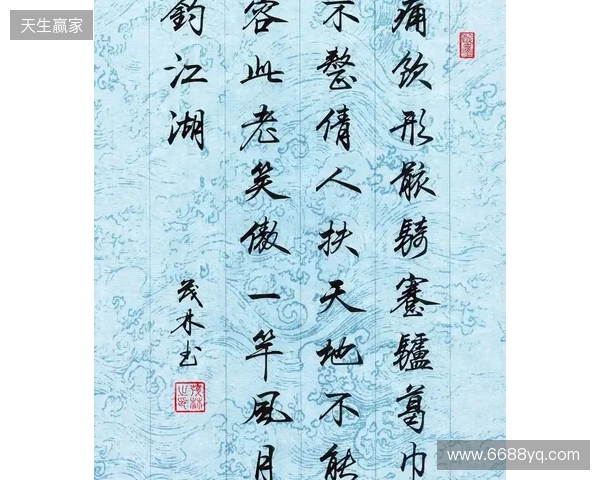 天生赢家
痛饮形骸骑蹇驴葛巾
不整倩人扶天地不能
容此老笑傲一竿风月
钓江湖
茂林书
www.6688yq.com